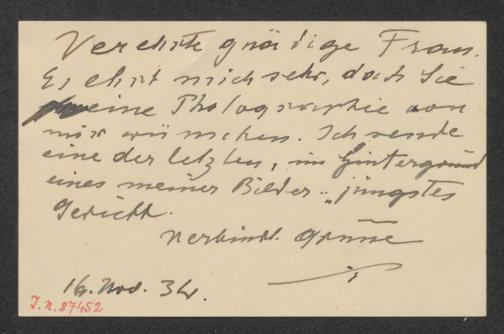 Verehrte gnädige Frau.
Es ehrt mich sehr, daß Sie
eine Photographie von
mir wünschen. Ich sende
eine der letzten, im Hintergrund
eines meiner Bilder „jüngstes
Gericht.
Verbindl. Grüße
16. Nov. 34.
I.N. 87452